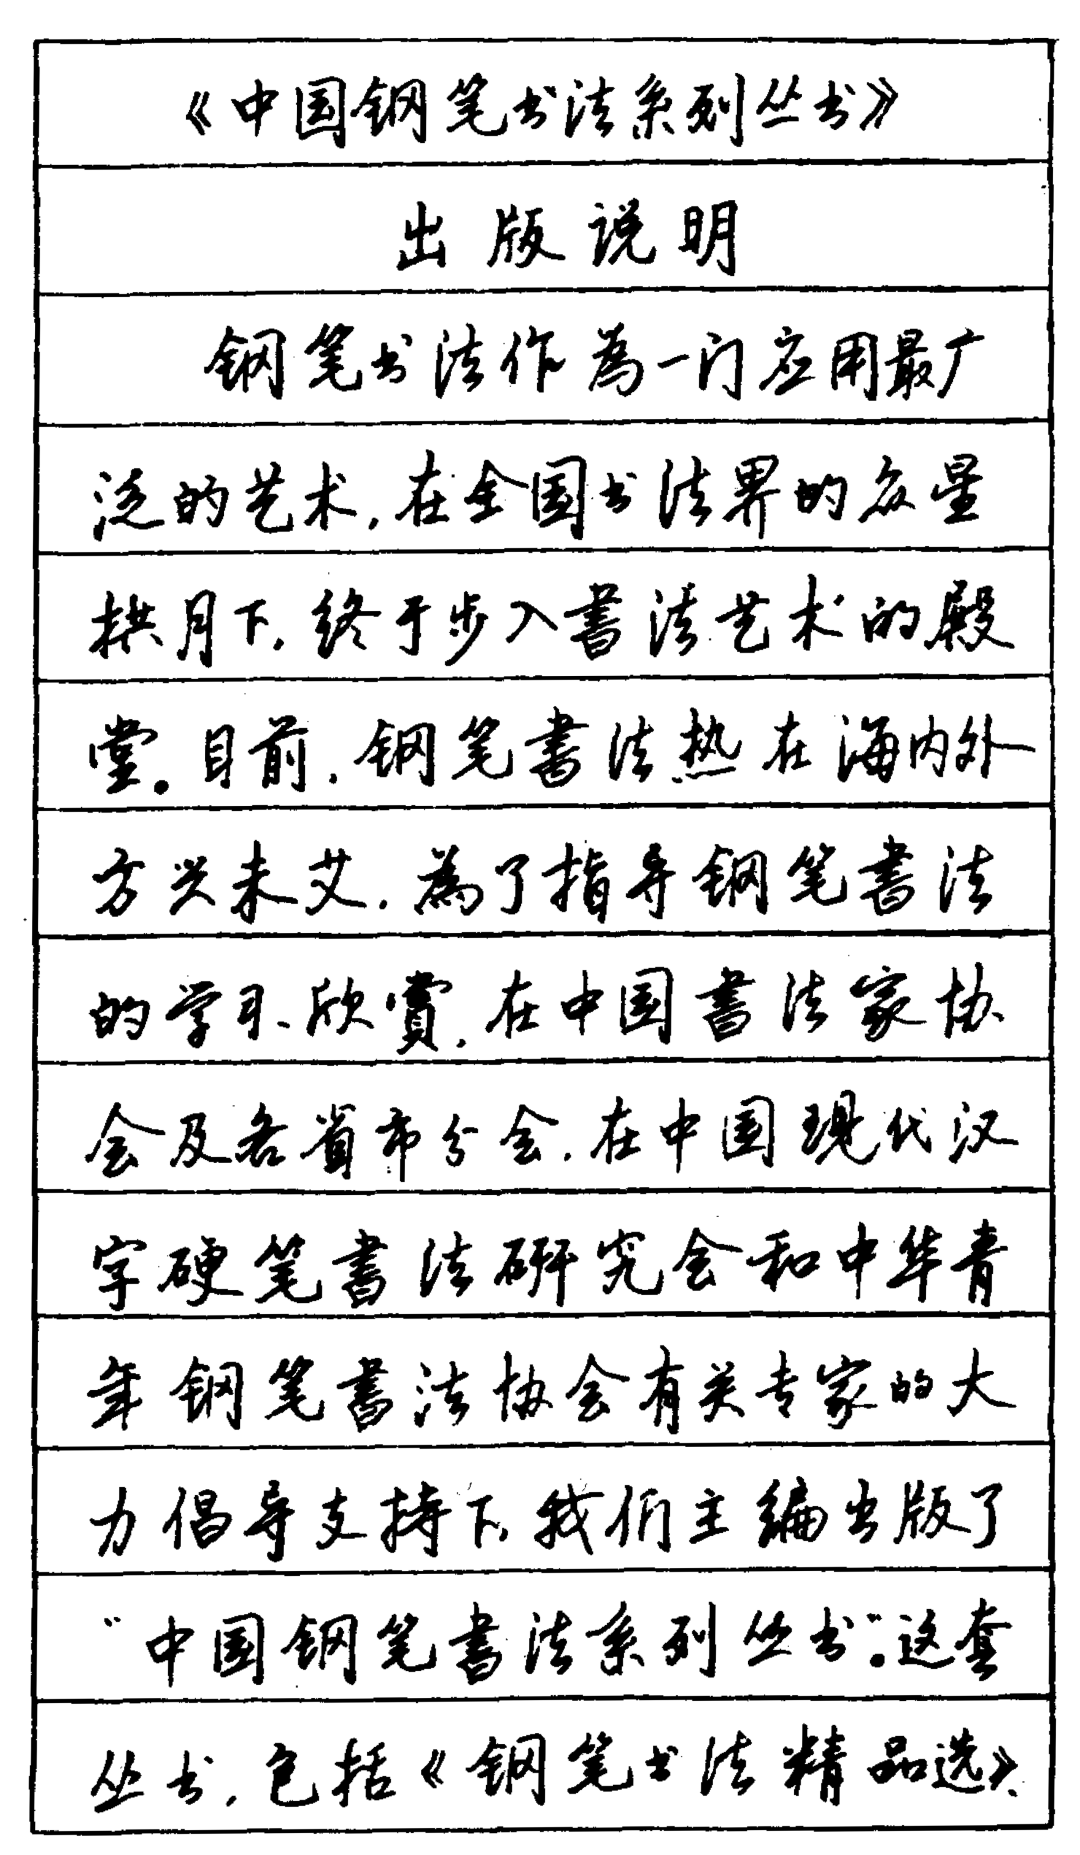 《中国钢笔书法系列丛书》
出版说明
钢笔书法作為一门应用最广
泛的艺术,在全国书法界的众星
拱月下,终于步入書法艺术的殿
堂。目前,钢笔書法热在海内外
方兴未艾,為了指导钢笔書法
的学习、欣賞,在中国書法家协
会及各省市分会,在中国現代汉
字硬笔書法研究会和中华青
年钢笔書法协会有关专家的大
力倡导支持下,我们主编出版了
"中国钢笔書法系列丛书"。这套
丛书,包括《钢笔书法精品选》、